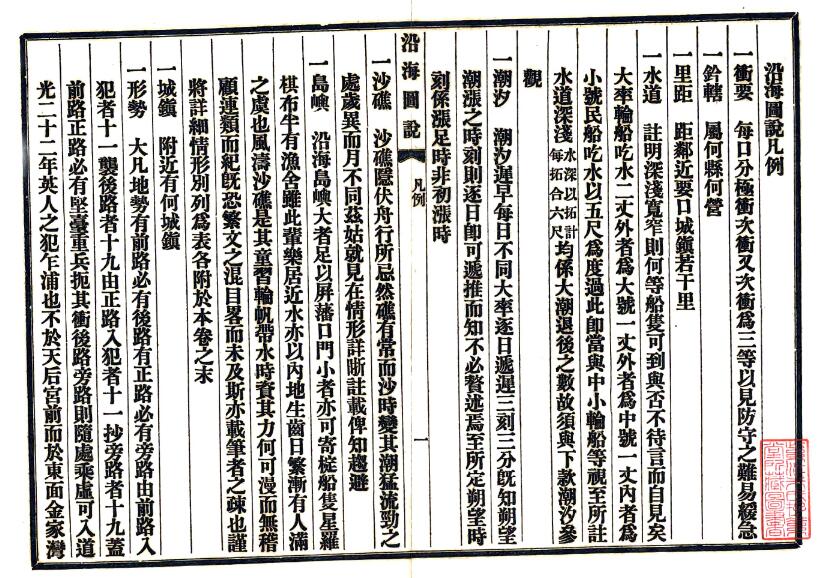 沿海圖說凡例
一衝要　每口分極衝次衝又次衝爲三等以見防守之難易緩急
一鈐轄　屬何縣何營
一里距　距鄰近要口城鎭若干里
一水道　註明深淺寬窄則何等船隻可到與否不待言而自見矣
大率輪船吃水二丈外者爲大號一丈外者爲中號一丈內者爲
小號民船吃水以五尺爲度過此卽當與中小輪船等視至所註
水道深淺水深以拓計每拓合六尺均係大潮退後之數故須與下款潮汐參
觀
一潮汐　潮汐遲早每日不同大率逐日遞遲三刻三分旣知朔望
潮漲之時刻則逐日卽可遞推而知不必贅述焉至所定朔望時
刻係漲足時非初漲時
沿海圖說
凡例
一
一沙礁　沙礁隱伏舟行所忌然礁有常而沙時變其潮猛流勁之
處歲異而月不同茲姑就見在情形詳晰註載俾知趨避
一島嶼　沿海島嶼大者足以屏藩口門小者亦可寄椗船隻星羅
棋布半有漁舍雖此輩樂居近水亦以內地生齒日繁漸有人滿
之虞也風濤沙礁是其童習輪帆帶水時資其力何可漫而無稽
顧連類而紀旣恐繁文之混目畧而未及斯亦載筆者之疎也謹
將詳細情形別列爲表各附於本卷之末
一城鎭　附近有何城鎭
一形勢　大凡地勢有前路必有後路有正路必有旁路由前路入
犯者十一襲後路者十九由正路入犯者十一抄旁路者十九蓋
前路正路必有堅臺重兵扼其衝後路旁路則隨處乘虛可入道
光二十二年英人之犯乍浦也不於天后宮前而於東面金家灣